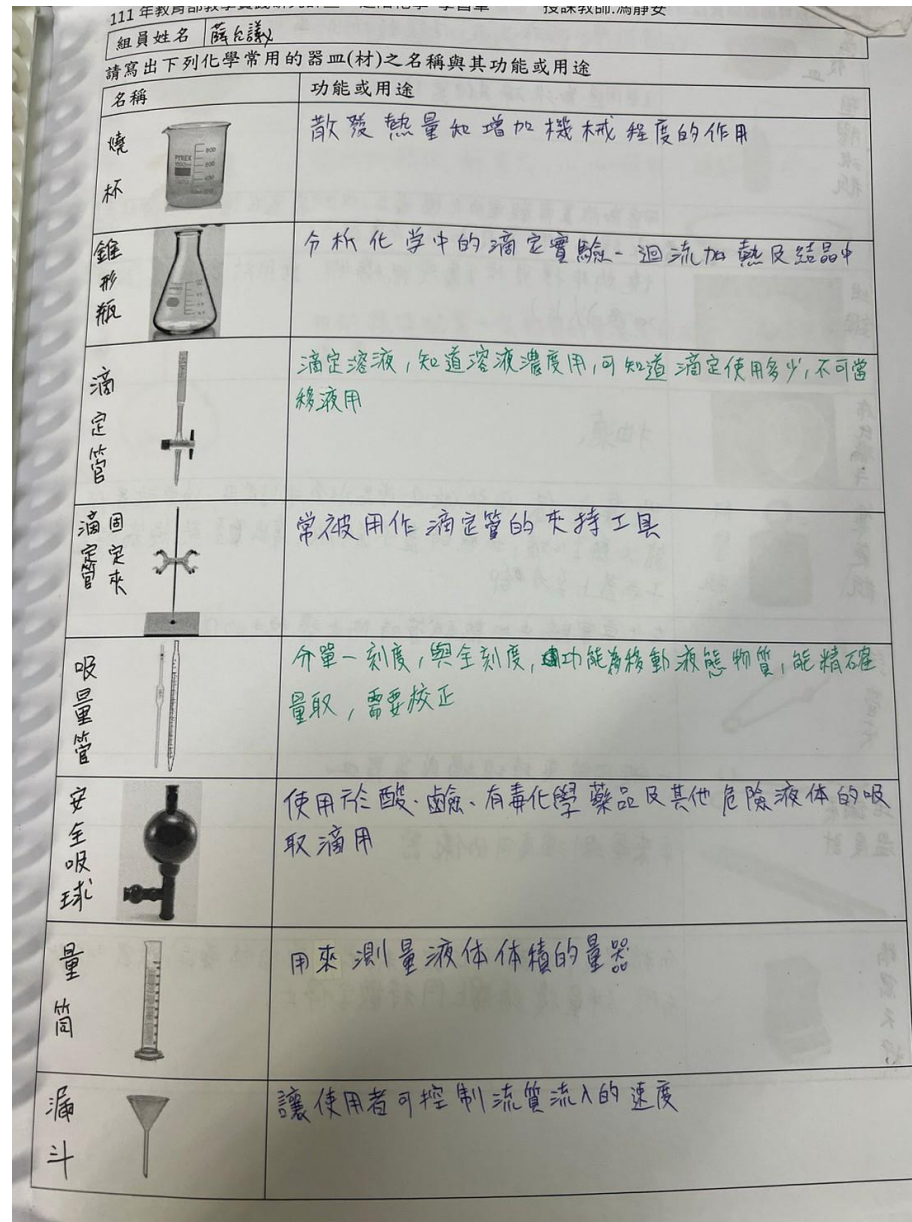 111年教育部教學實踐研究計畫
授課教師:馮靜安
組員姓名 薛
請寫出下列化學常用的器皿(材)之名稱與其功能或用途
名稱 功能或用途
燒杯 散發熱量和增加機械程度的作用
錐形瓶 分析化学中的滴定實驗-迴流加熱及結晶中
滴定管 滴定溶液,知道溶液濃度用,可知道滴定使用多少,不可當
移液用
滴定管固定夾 常被用作滴定管的夾持工具
吸量管 分單一刻度,與全刻度,功能為移動液態物質,能精確
量取,需要校正
安全吸球 使用於酸、鹼、有毒化學藥品及其他危險液体的吸
取滴用
量筒 用來測量液体体積的量器
漏斗 讓使用者可控制流質流入的速度
PYREX
溫度計